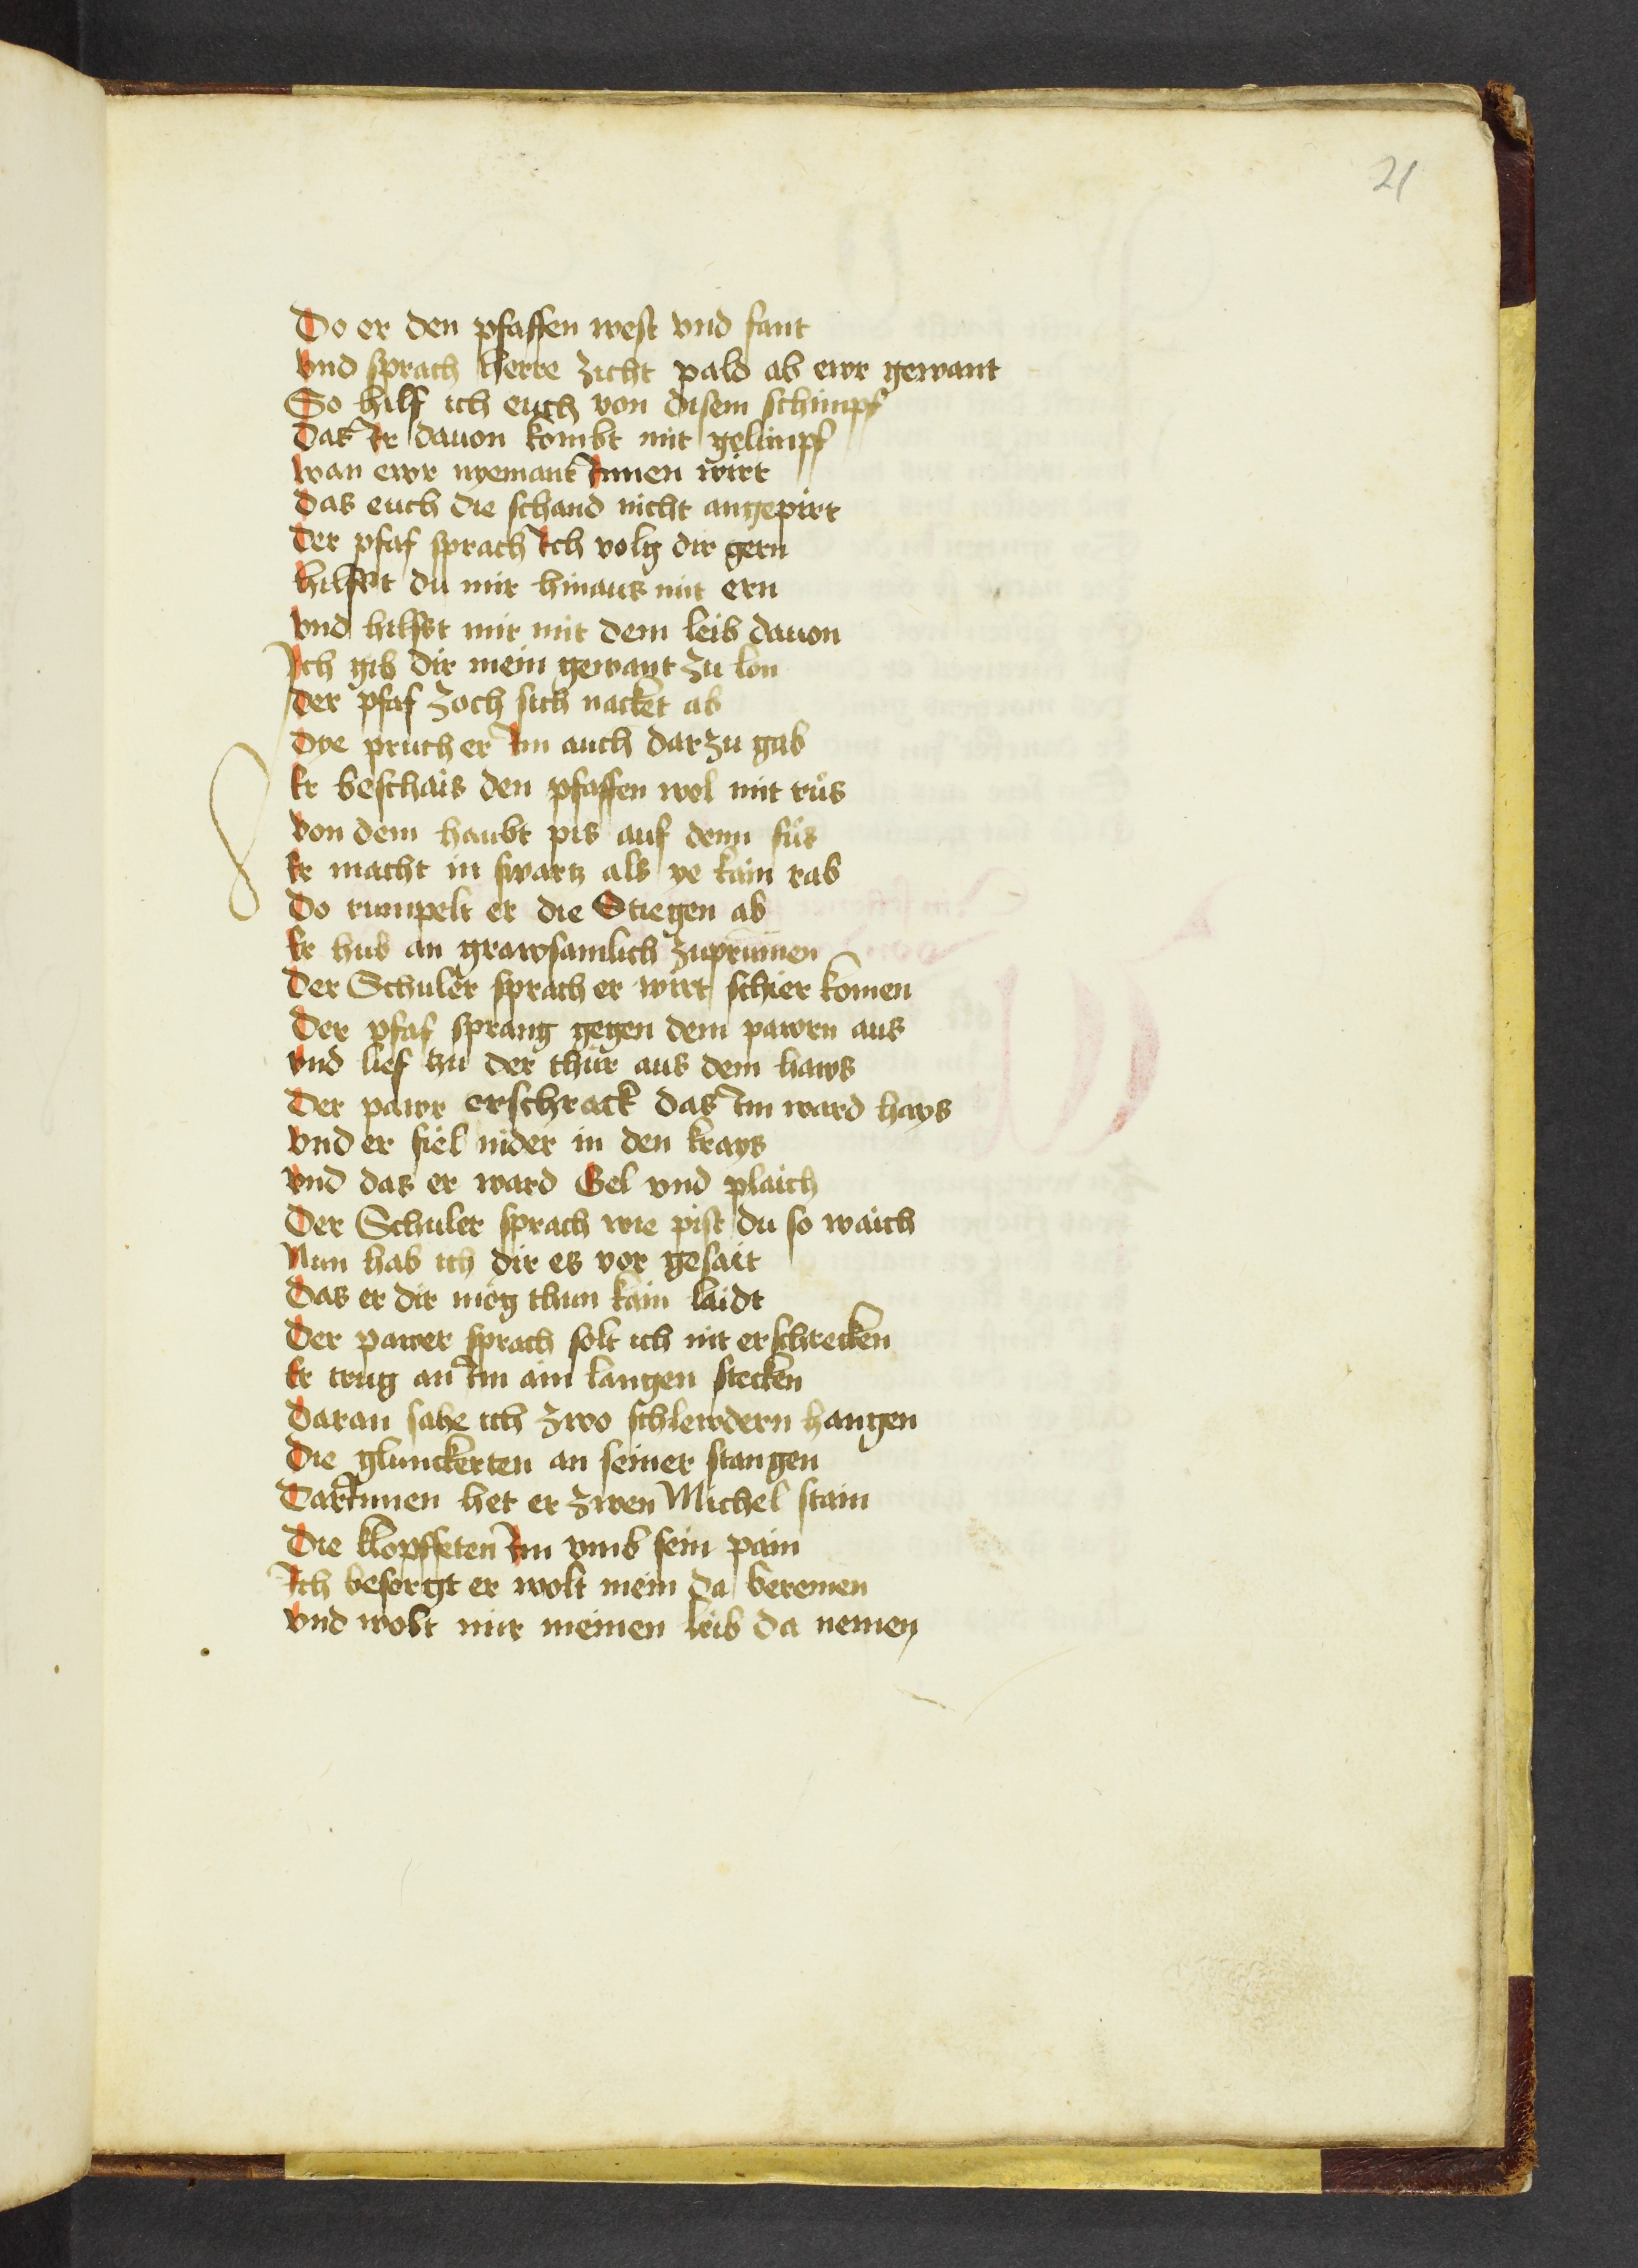 21
Do er den pfaffen west vnd fant
vnd sprach herre zicht pald ab ewr gewant
So hilf ich euch von disem schimpf
das Ir dauon kombt mit gelimpf
wan ewr nyemant Innen wirt
das euch die schand nicht angepirt
der pfaf sprach Ich volg dir gern
hilfst du mir hinaus mit ern
vnd hilfst mir mit dem leib dauon
Ich gib dir mein gewant zu lon
der pfaf zoch sich nacket ab
dye pruch er Im auch darzu gab
Er beschais den pfaffen wol mit růs
von dem haubt pis auf denn fůs
Er macht in swartz als ye kain rab
do rumpelt er die Stiegen ab
Er hub an grawsamlich zuprūmen
der Schuler sprach er wirt schier komen
der pfaf sprang gegen dem pawrn aus
vnd lief tzu der thür aus dem haws
der pawr erschrack das Im ward hays
vnd er fiel nider in den krays
vnd das er ward Gel vnd plaich
der Schuler sprach wie pist du so waich
Nun hab ich dir es vor gesait
das er dir mög thun kain laidt
der pawer sprach solt ich nit erschrecken
Er trug an Im ain langen stecken
daran sahe ich zwo schlewdern hangen
die glunckerten an seiner stangen
darInnen het er zwen Michel stain
die klopffeten Im vmb sein pain
Ich besorgt er wolt mein da beremen
vnd wolt mir meinen leib da nemen